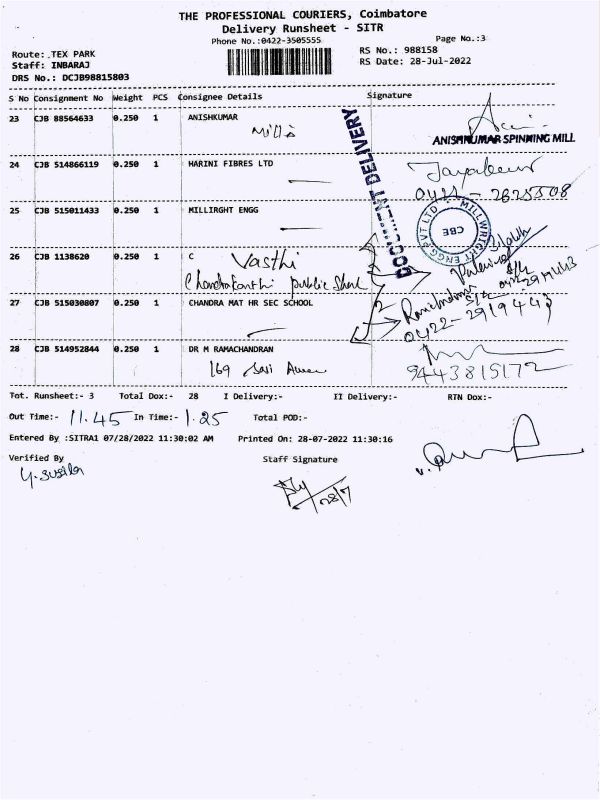 THE PROFESSIONAL COURIERS, Coimbatore
Delivery Runsheet - SITR
Phone No.:0422-3505555
Page No.:3
Route: TEX PARK
RS No.: 988158
Staff: INBARAJ
RS Date: 28-Jul-2022
DRS No.: DCJB98815803
S No Consignment No Weight PCS Consignee Details Signature
23 CJB 88564633 0.250 1 ANISHKUMAR
Mills
ANISHKUMAR SPINNING MILL
DOCUMENT DELIVERY
24 CJB 514866119 0.250 1 HARINI FIBRES LTD
25 CJB 515011433 0.250 1 MILLIRGHT ENGG
MILLWRIGHT ENGG PVT LTD
CBE
26 CJB 1138620 0.250 1 C Vasthi
Chandrakanthi public
27 CJB 515030807 0.250 1 CHANDRA MAT HR SEC SCHOOL
0422-2919443
28 CJB 514952844 0.250 1 DR M RAMACHANDRAN
169
9443815172
Tot. Runsheet:- 3 Total Dox:- 28 I Delivery:- II Delivery:- RTN Dox:-
Out Time:- 11.45 In Time:- 1.25 Total POD:-
Entered By :SITRA1 07/28/2022 11:30:02 AM Printed On: 28-07-2022 11:30:16
Verified By Staff Signature
Y. Susila
28/7